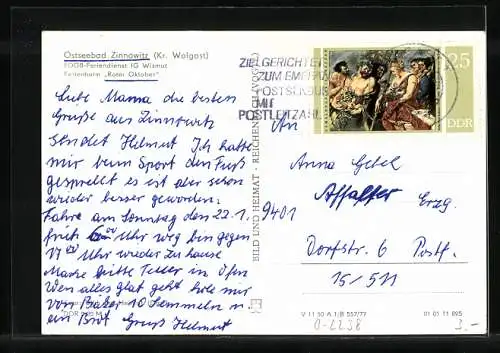 Ostseebad Zinnowitz (Kr. Wolgast)
FDGB-Feriendienst IG Wismut
Ferienheim „Roter Oktober"
Liebe Mama die besten
Grüße aus Zinnowitz
sendet Helmut Ich hatte
mir beim Sport den Fuß
gesprellt es ist aber schon
wieder besser geworden.
Fahre am Sonntag den 22.1.
früh Uhr weg bin gegen
17 00 Uhr wieder zu hause
Mache bitte Teller in Ofen
Wen alles glat geht hole mir
von Bäker 10 Semmeln u.
ein Brot Gruß Helmut
BILD UND HEIMAT · REICHENBACH (VOGTL)
ZIELGERICHTET
ZUM EMPFÄNGER
POSTSENDUNGEN
MIT
POSTLEITZAHL
25
DDR
An
Anna
Affalter Erzg.
9401
Dorfstr. 6 Postf.
15/511
V 11 50 A 1/B 557/77
01 01 11 095
0-2238
3.-